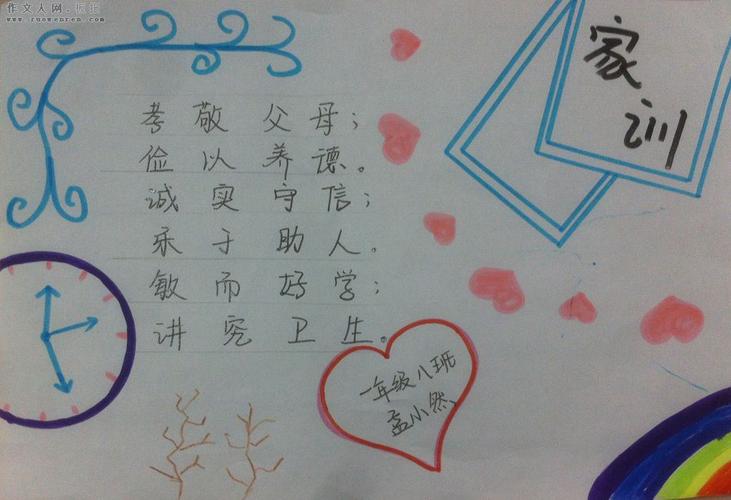 作文人网
www.zuowenren.com
家
训
孝敬父母；
俭以养德。
诚实守信；
乐于助人。
敏而好学；
讲究卫生。
一年级八班
孟小然